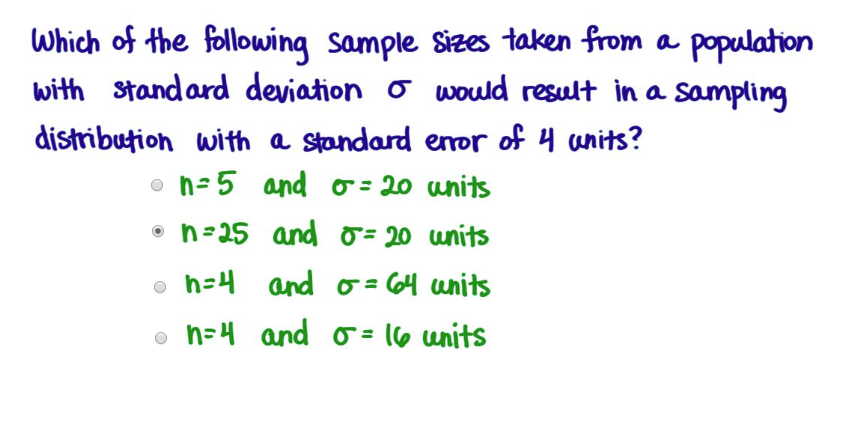 Which of the following sample sizes taken from a population
with standard deviation σ would result in a sampling
distribution with a standard error of 4 units?
n=5 and σ=20 units
n=25 and σ=20 units
n=4 and σ=64 units
n=4 and σ=16 units